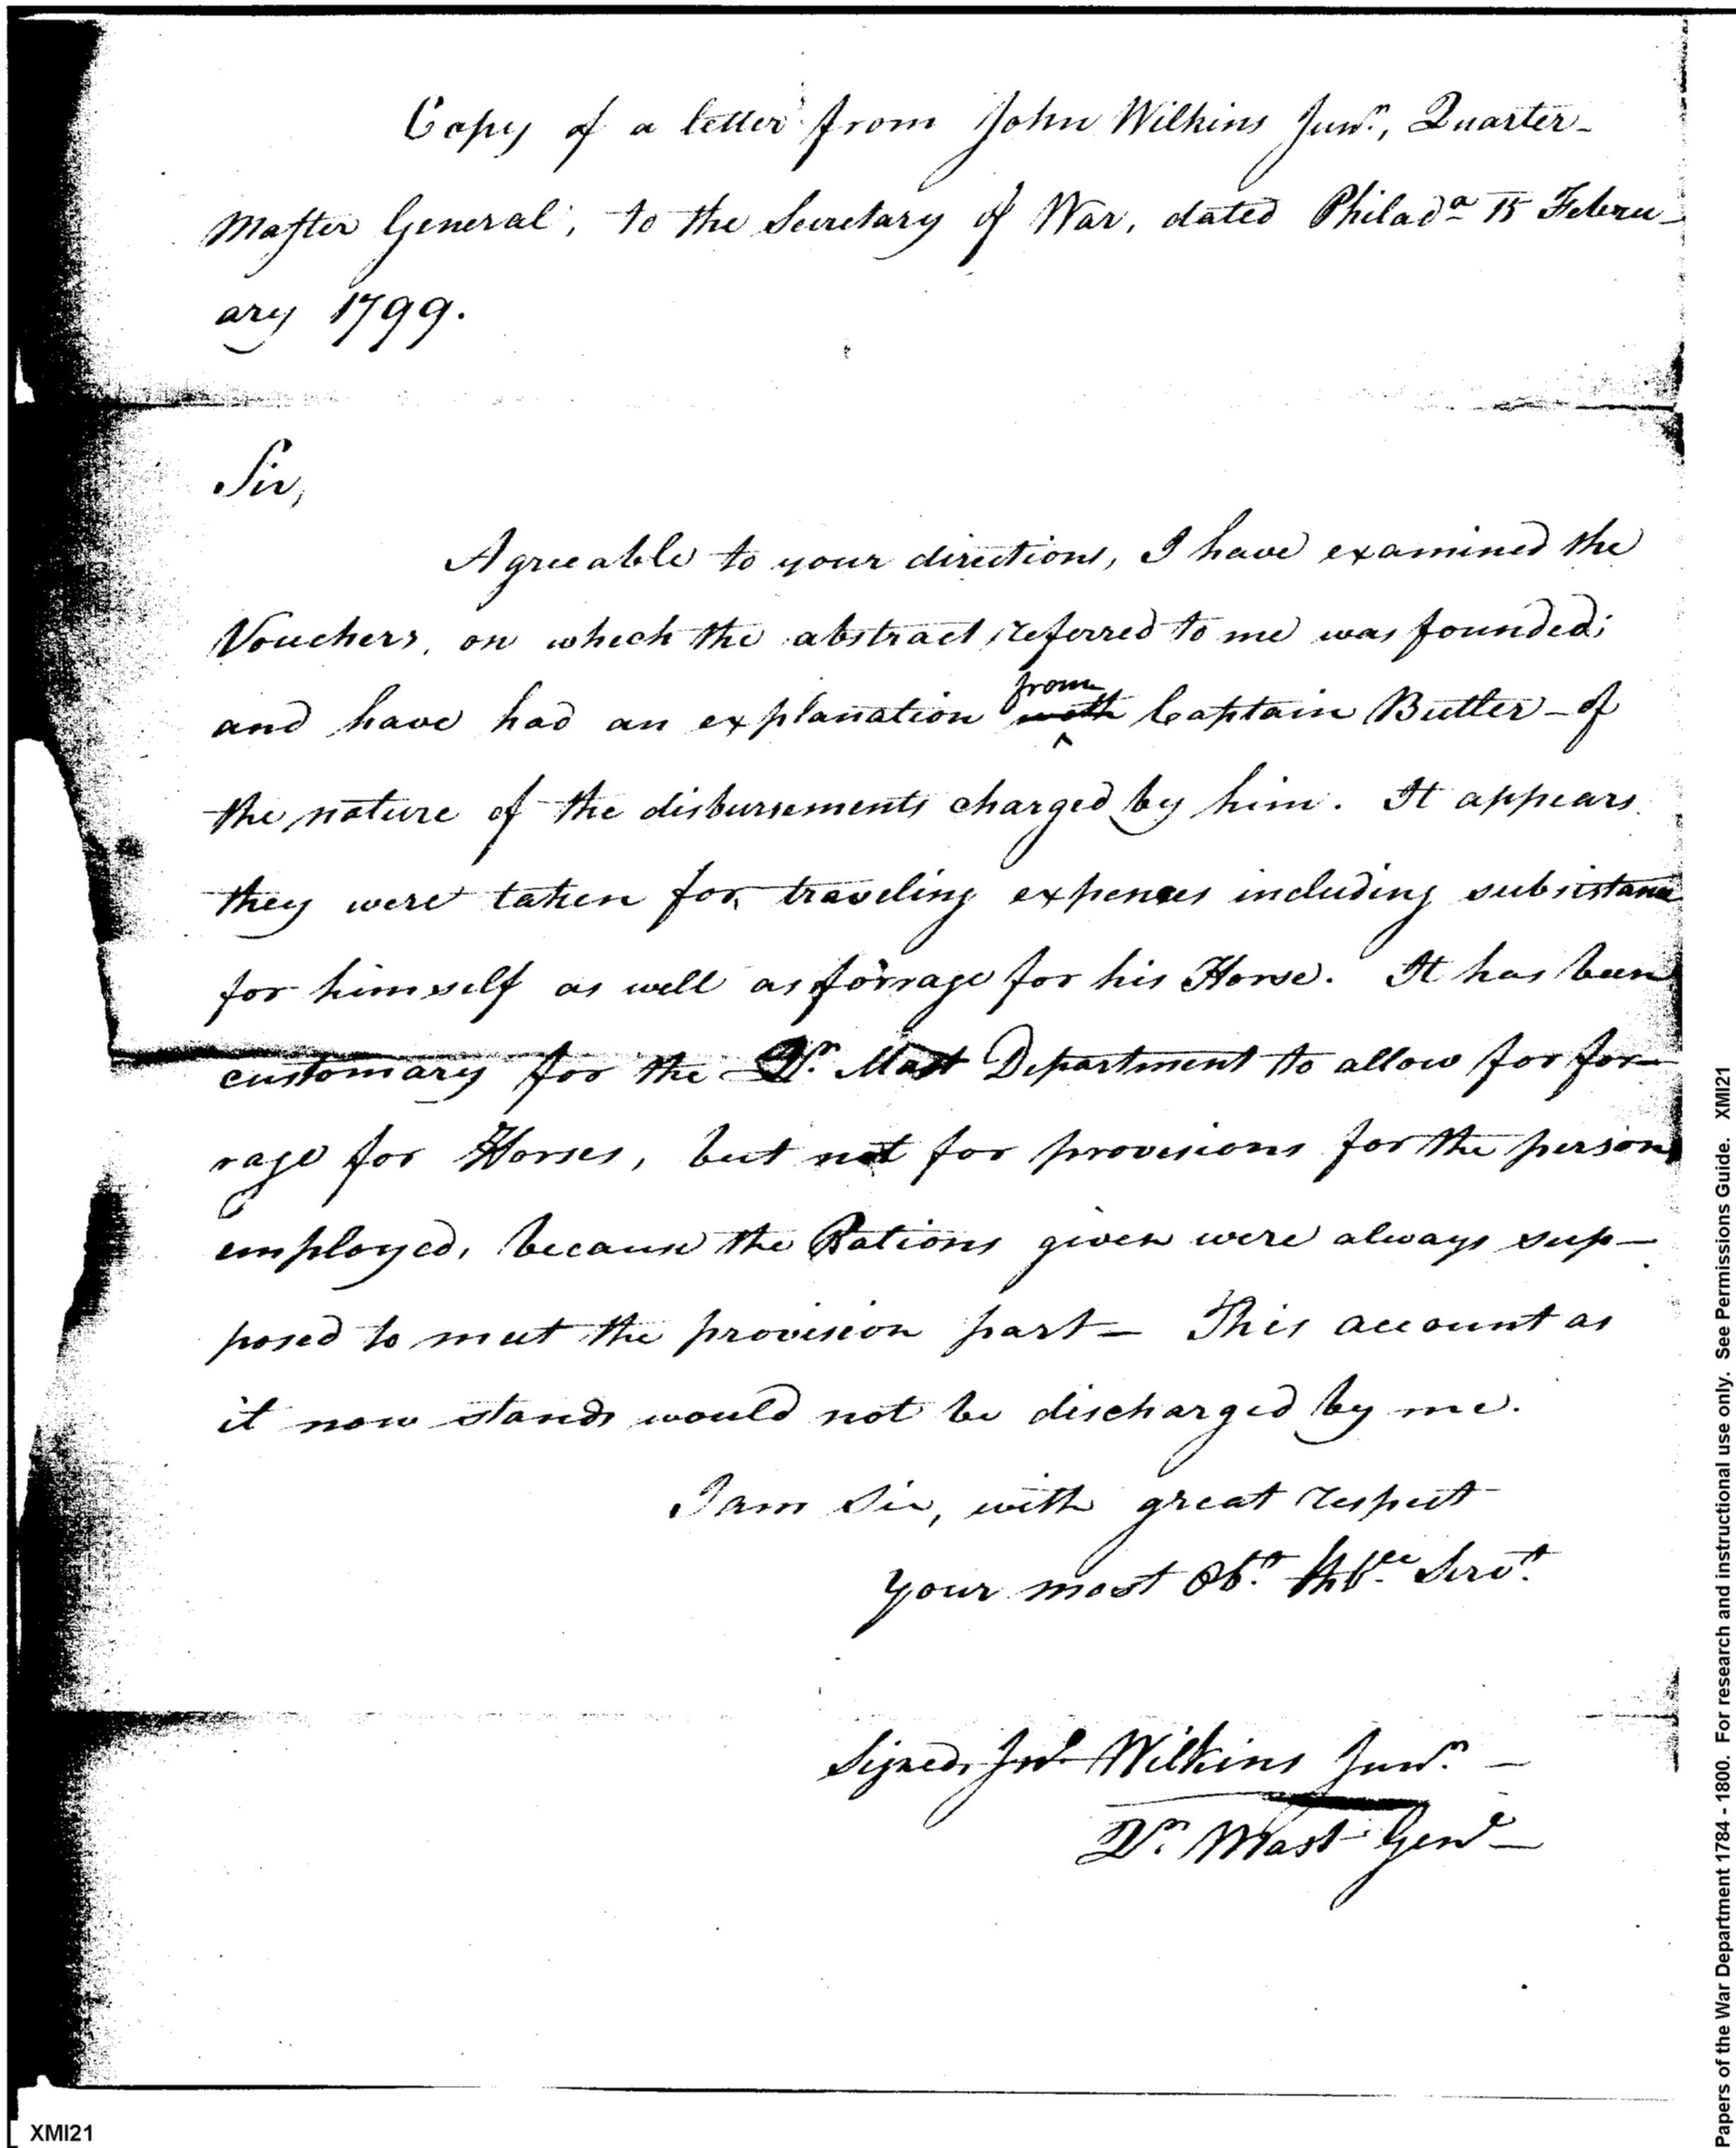 Copy of a letter from John Wilkins Junr., Quarter-
Master General, to the Secretary of War, dated Philada 15 Febru-
ary 1799.
Sir,
Agreeable to your directions, I have examined the
Vouchers, on which the abstract referred to me was founded;
from
and have had an explanation with Captain Butler - of
the nature of the disbursements charged by him. It appears
they were taken for traveling expences including subsistance
for himself as well as forrage for his Horse. It has been
customary for the Qr. Mast Department to allow for for-
rage for Horses, but not for provisions for the person
employed, because the Rations given were always sup-
posed to meet the provision part - This account as
it now stands would not be discharged by me.
I am Sir, with great respect
your most Obt. Hble Servt.
Signed, Jno Wilkins Junr. -
Qr. Mast Genl -
XMI21
Papers of the War Department 1784 - 1800. For research and instructional use only. See Permissions Guide. XMI21